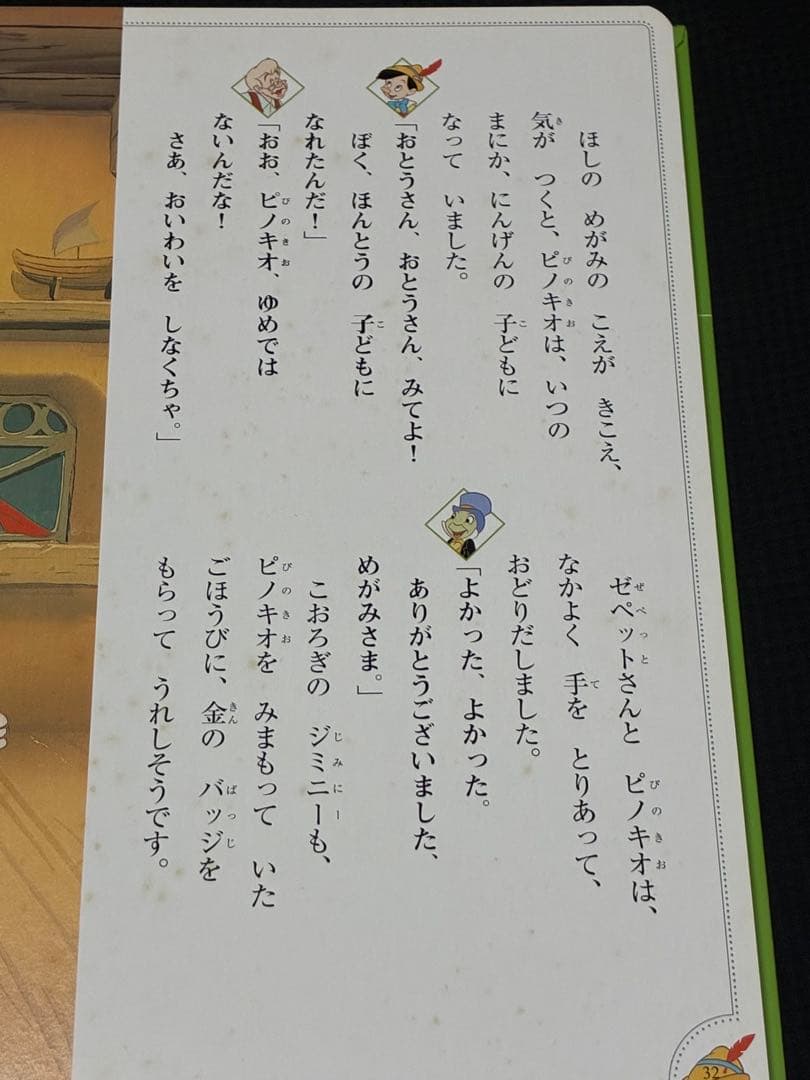 ほしの　めがみの　こえが　きこえ、
気が　つくと、ピノキオは、いつの
まにか、にんげんの　子どもに
なって　いました。
「おとうさん、おとうさん、みてよ！
ぼく、ほんとうの　子どもに
なれたんだ！」
「おお、ピノキオ、ゆめでは
ないんだな！
さあ、おいわいを　しなくちゃ。」
ゼペットさんと　ピノキオは、
なかよく　手を　とりあって、
おどりだしました。
「よかった、よかった。
ありがとうございました、
めがみさま。」
こおろぎの　ジミニーも、
ピノキオを　みまもって　いた
ごほうびに、金の　バッジを
もらって　うれしそうです。
32